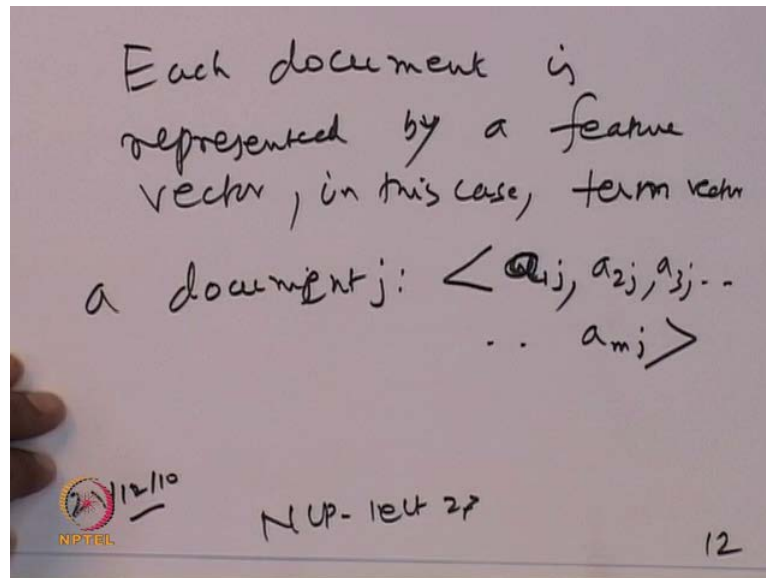 Each document is
represented by a feature
vector, in this case, term vector
a document j: < a1j, a2j, a3j..
.. amj >
/12/10
NPTEL
NLP- lect
12